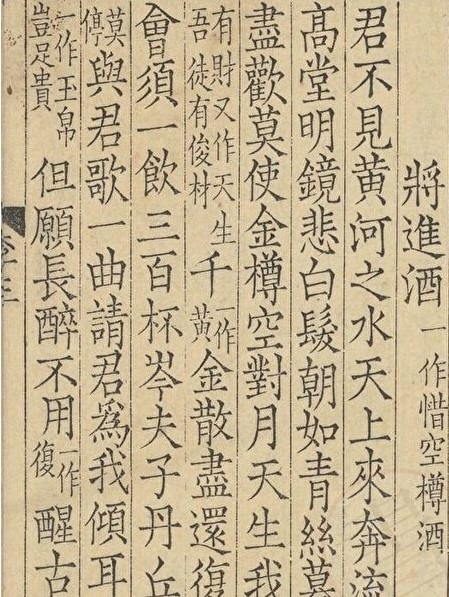 將進酒一作惜空樽酒
君不見黄河之水天上來奔流
高堂明鏡悲白髮朝如青絲暮
盡歡莫使金樽空對月天生我
有財又作天生吾徒有俊材千一作黄金散盡還復
會須一飲三百杯岑夫子丹丘
莫停與君歌一曲請君爲我傾耳
一作玉帛豈足貴但願長醉不用一作復醒古